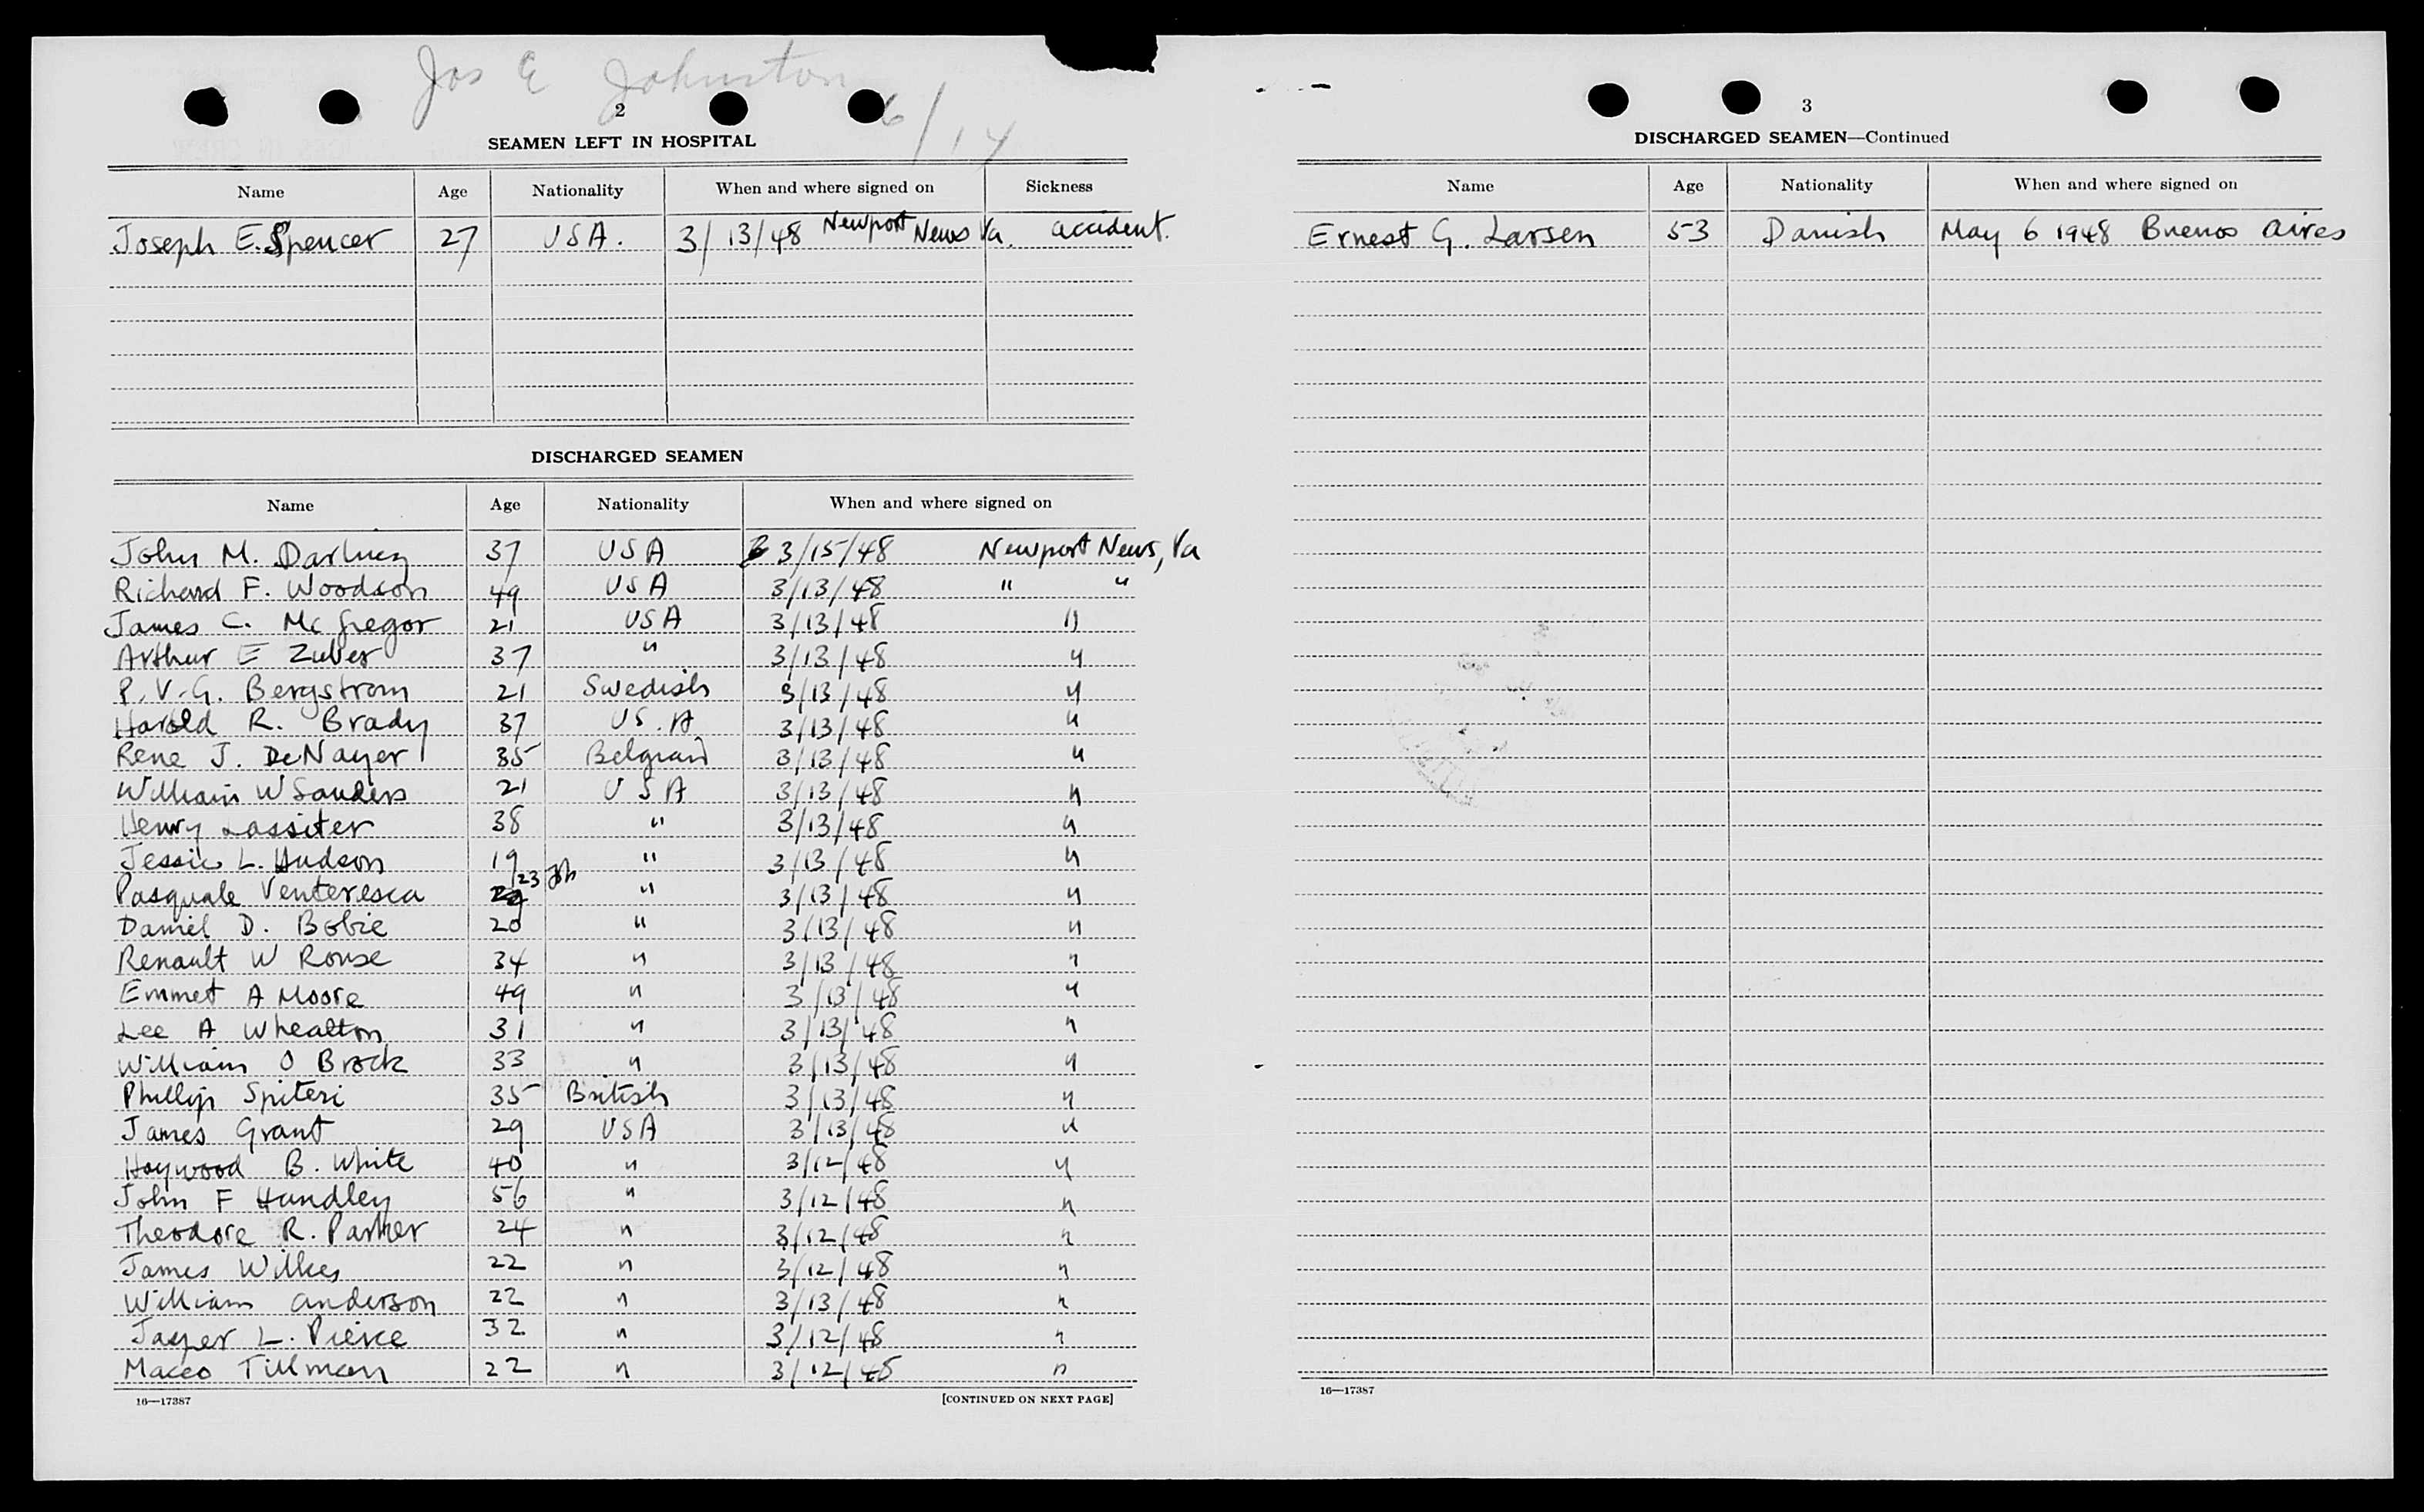 Jos E Johnston
6/14
2
SEAMEN LEFT IN HOSPITAL
Name Age Nationality When and where signed on Sickness
Joseph E. Spencer 27 USA. 3/13/48 Newport News Va. accident.
DISCHARGED SEAMEN
Name Age Nationality When and where signed on
John M. 37 USA 3/15/48 Newport News, Va
Richard F. Woodson 49 USA 3/13/48 " "
James C. McGregor 21 USA 3/13/48 "
Arthur E Zuber 37 " 3/13/48 "
P. V. G. Bergstrom 21 Swedish 3/13/48 "
Harold R. Brady 37 US.A 3/13/48 "
Rene J. DeNayer 35 Belgian 3/13/48 "
William W Sanders 21 USA 3/13/48 "
Henry Lassiter 38 " 3/13/48 "
Jessie L. Hudson 19 " 3/13/48 "
Pasquale Venteresca 23 " 3/13/48 "
Daniel D. Bobie 20 " 3/13/48 "
Renault W Rouse 34 " 3/13/48 "
Emmet A Moore 49 " 3/13/48 "
Lee A Whealton 31 " 3/13/48 "
William O Brock 33 " 3/13/48 "
Phillip Spiteri 35 British 3/13/48 "
James Grant 29 USA 3/13/48 "
Haywood B. White 40 " 3/12/48 "
John F Handley 56 " 3/12/48 "
Theodore R. Parker 24 " 3/12/48 "
James Wilkes 22 " 3/12/48 "
William Anderson 22 " 3/13/48 "
L. Pierce 32 " 3/12/48 "
Maceo Tillman 22 " 3/12/48 "
16—17387 [CONTINUED ON NEXT PAGE]
3
DISCHARGED SEAMEN—Continued
Name Age Nationality When and where signed on
Ernest G. Larsen 53 Danish May 6 1948 Buenos Aires
16—17387